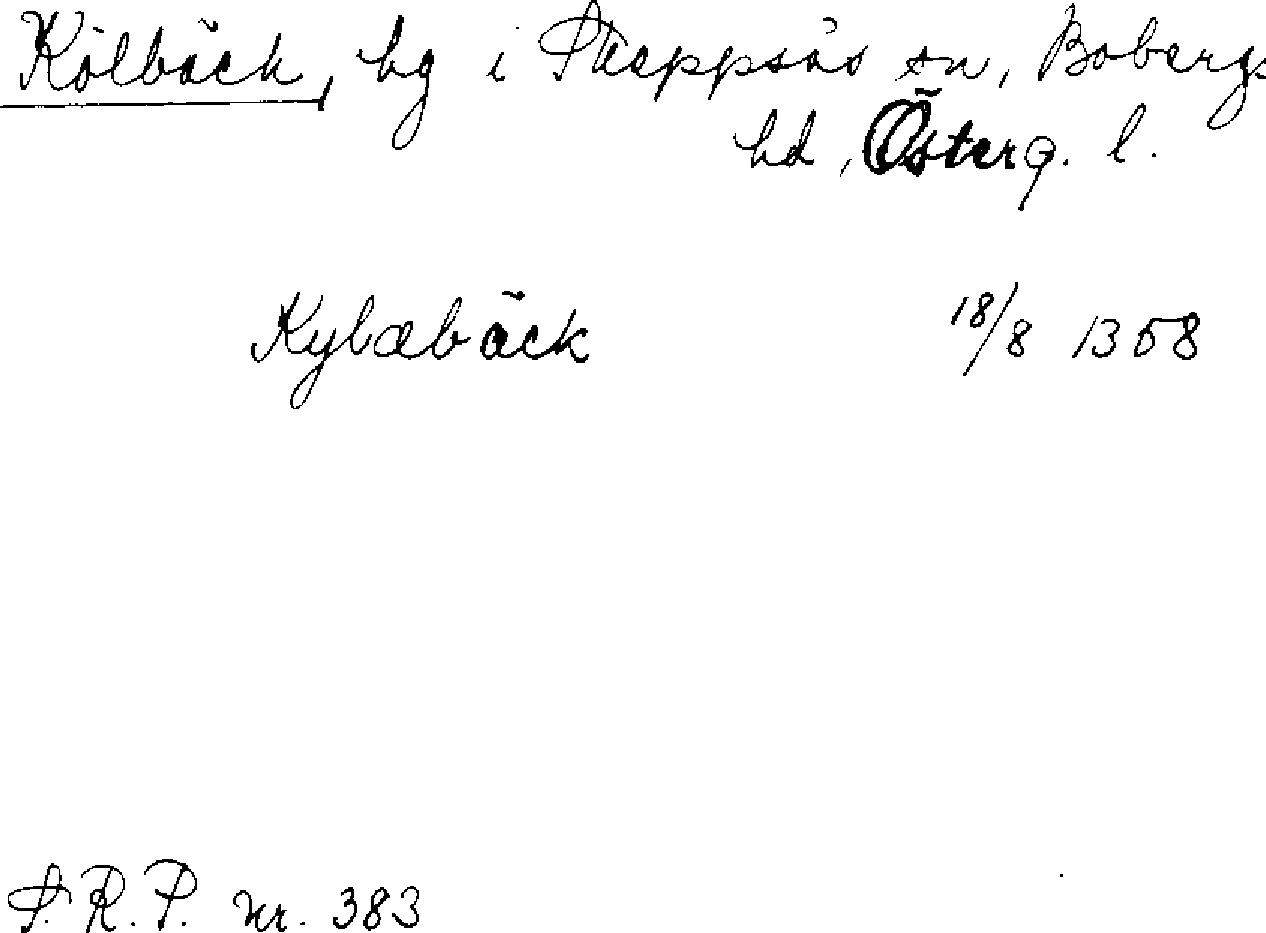 Kölbäck, hg i Skeppsås sn, Bobergs
hd, Österg. l.
Kylæbäck 18/8 1358
S.R.P. nr. 383